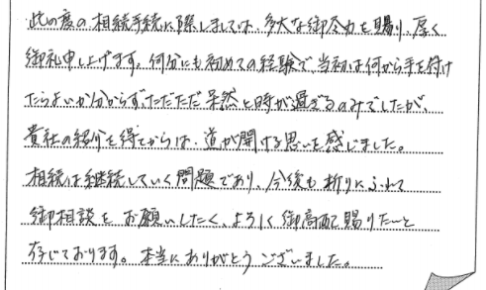 此の度の相続手続に際しましては、多大な御尽力を賜り、厚く
御礼申し上げます。何分にも初めての経験で、当初は何から手を付け
たらよいか分からず、ただただ呆然と時が過ぎるのみでしたが、
貴社の紹介を得てからは、道が開ける思いを感じました。
相続は継続していく問題であり、今後も折りにふれて
御相談をお願いしたく、よろしく御高配賜りたいと
存じております。本当にありがとうございました。